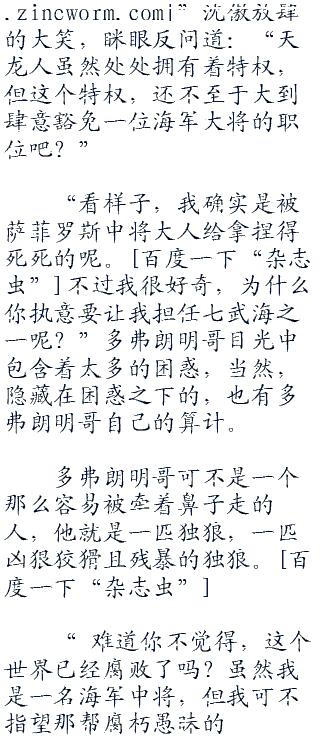 .zincworm.com|”沈傲放肆
的大笑，眯眼反问道：“天
龙人虽然处处拥有着特权，
但这个特权，还不至于大到
肆意豁免一位海军大将的职
位吧？”
“看样子，我确实是被
萨菲罗斯中将大人给拿捏得
死死的呢。[百度一下“杂志
虫”]不过我很好奇，为什么
你执意要让我担任七武海之
一呢？”多弗朗明哥目光中
包含着太多的困惑，当然，
隐藏在困惑之下的，也有多
弗朗明哥自己的算计。
多弗朗明哥可不是一个
那么容易被牵着鼻子走的
人，他就是一匹独狼，一匹
凶狠狡猾且残暴的独狼。[百
度一下“杂志虫”]
“ 难道你不觉得，这个
世界已经腐败了吗？虽然我
是一名海军中将，但我可不
指望那帮腐朽愚昧的